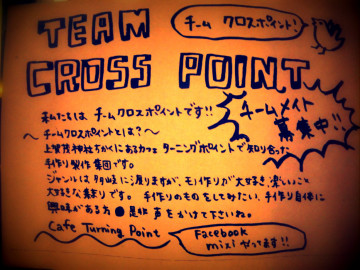 TEAM
チーム クロスポイント!
CROSS POINT
私たちは チームクロスポイントです!!
チームメイト
募集中!!
〜チームクロスポイントとは?〜
上賀茂神社ちかくにあるカフェ ターニングポイントで知り合った
手作り製作集団です。
ジャンルは多岐に渡りますが、モノ作りが大好き、楽しいこと
大好きな集まりです。手作りのものをしてみたい、手作り自体に
興味がある方 ● 是非 声をかけて下さいね。
Cafe Turning Point
Facebook
mixi やってます!!